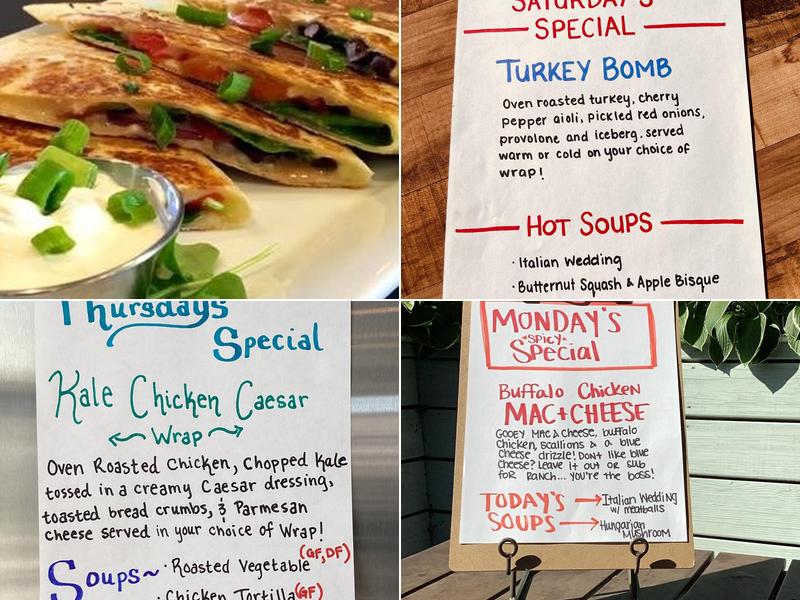 SATURDAY'S
SPECIAL
TURKEY BOMB
Oven roasted turkey, cherry
pepper aioli, pickled red onions,
provolone and iceberg. served
warm or cold on your choice of
wrap!
HOT SOUPS
· Italian Wedding
· Butternut Squash & Apple Bisque
Thursdays
Special
Kale Chicken Caesar
Wrap
Oven Roasted Chicken, Chopped Kale
tossed in a creamy Caesar dressing,
toasted bread crumbs, & Parmesan
cheese served in your choice of Wrap!
Soups~ · Roasted Vegetable (GF, DF)
· Chicken Tortilla (GF)
MONDAY'S
*SPICY*
Special
Buffalo Chicken
MAC+CHEESE
GOOEY MAC & CHEESE, buffalo
chicken, scallions & a blue
cheese drizzle! DON't like blue
cheese? Leave it out or sub
for RANCH... YOU're the boss!
TODAY'S → Italian Wedding
w/ meatballs
SOUPS → Hungarian
Mushroom